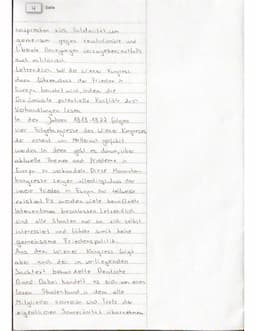 4 Seite
versprechen sich Solidarität, um
gemeinsam gegen revolutionäre und
liberale Bewegungen vorzugehen, notfalls
auch militärisch.
Letztendlich hat der Wiener Kongress
dazu führen, dass der Frieden in
Europa bewahrt wird, indem die
Diplomaten potentielle Konflikte durch
Verhandlungen lösen.
In den Jahren 1818-1822 folgen
vier Folgekongresse des Wiener Kongresses
der erneut von Metternich geführt
werden. In denen geht es darum, über
aktuelle Themen und Probleme in
Europa zu verhandeln. Diese Monarchen-
kongresse zeigen allerdings, dass der
innere Frieden in Europa nur teilweise
existiert. Es werden viele bewaffnete
Interventionen beschlossen. Letztendlich
sind alle Staaten nur an sich selbst
interessiert und führen somit keine
gemeinsame Friedenspolitik.
Aus dem Wiener Kongress folgt
aber noch der im vorliegenden
Sachtext behandelte Deutsche
Bund. Dabei handelt es sich um einen
losen Staatenbund, in dem alle
Mitglieder souverän sind, trotz der
eigentlichen Souveränität übernehmen